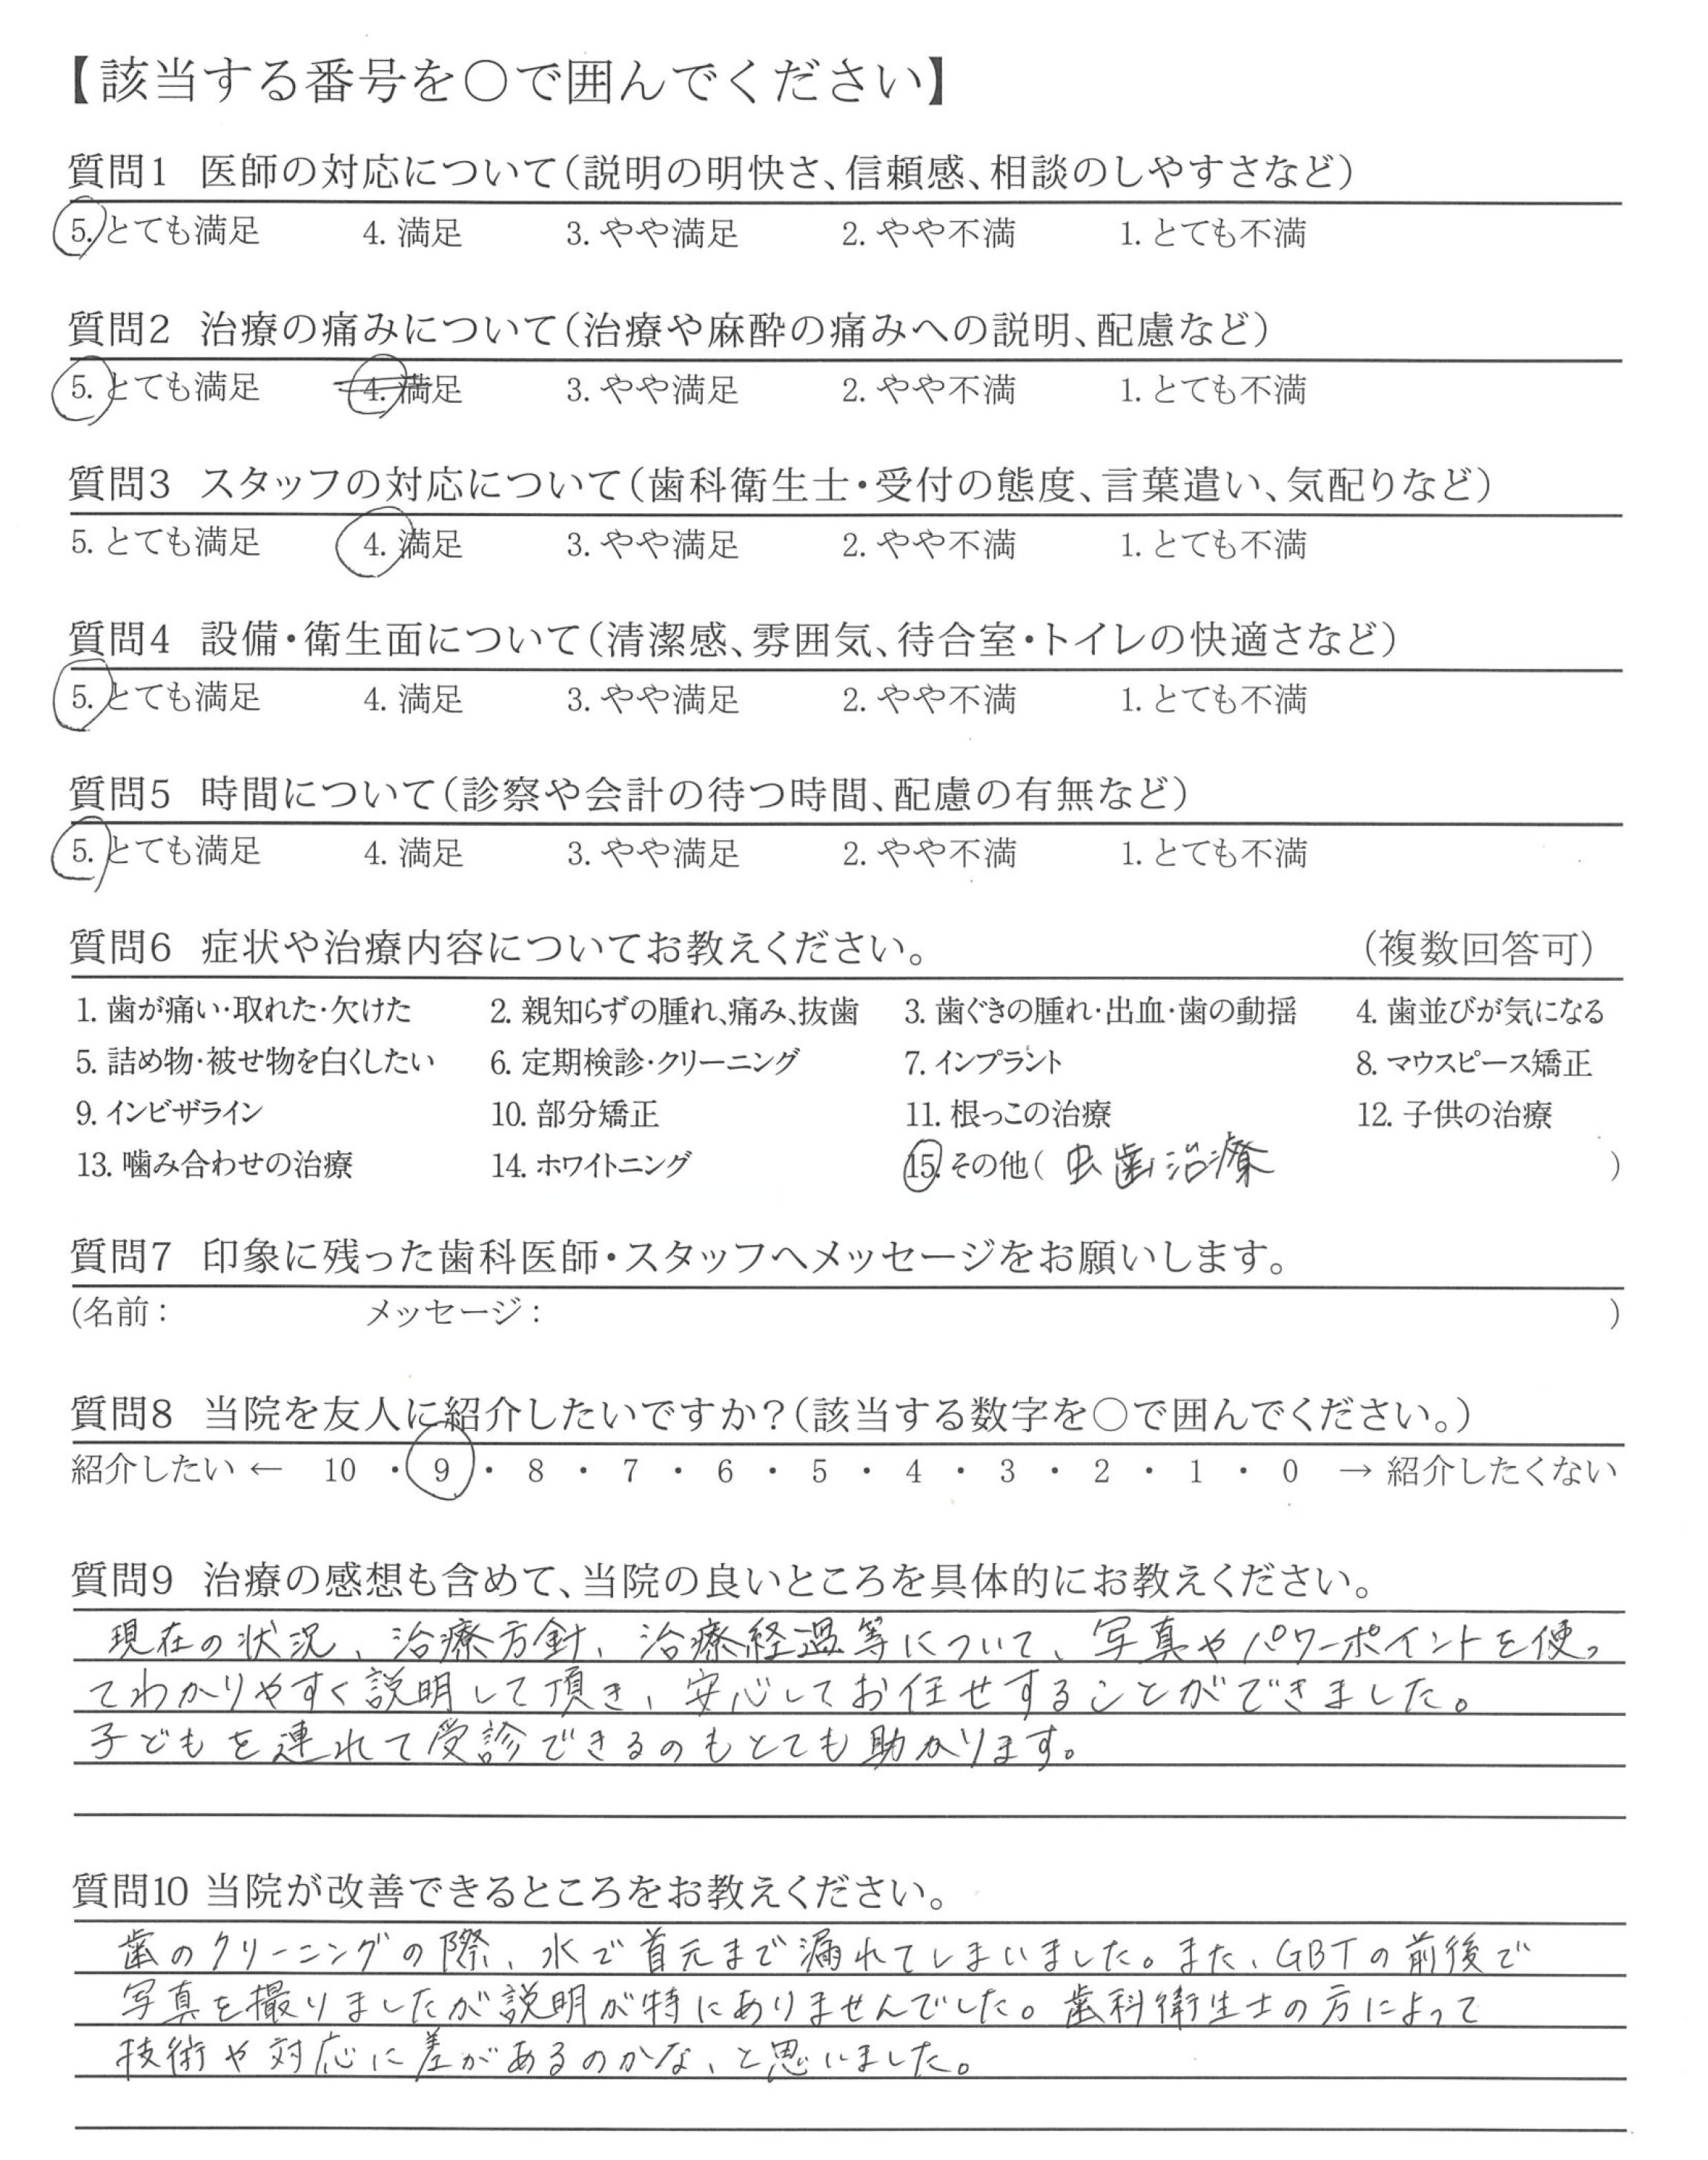 【該当する番号を○で囲んでください】
質問1 医師の対応について(説明の明快さ、信頼感、相談のしやすさなど)
5. とても満足 4. 満足 3. やや満足 2. やや不満 1. とても不満
質問2 治療の痛みについて(治療や麻酔の痛みへの説明、配慮など)
5. とても満足 4. 満足 3. やや満足 2. やや不満 1. とても不満
質問3 スタッフの対応について(歯科衛生士・受付の態度、言葉遣い、気配りなど)
5. とても満足 4. 満足 3. やや満足 2. やや不満 1. とても不満
質問4 設備・衛生面について(清潔感、雰囲気、待合室・トイレの快適さなど)
5. とても満足 4. 満足 3. やや満足 2. やや不満 1. とても不満
質問5 時間について(診察や会計の待つ時間、配慮の有無など)
5. とても満足 4. 満足 3. やや満足 2. やや不満 1. とても不満
質問6 症状や治療内容についてお教えください。 (複数回答可)
1. 歯が痛い・取れた・欠けた 2. 親知らずの腫れ、痛み、抜歯 3. 歯ぐきの腫れ・出血・歯の動揺 4. 歯並びが気になる
5. 詰め物・被せ物を白くしたい 6. 定期検診・クリーニング 7. インプラント 8. マウスピース矯正
9. インビザライン 10. 部分矯正 11. 根っこの治療 12. 子供の治療
13. 噛み合わせの治療 14. ホワイトニング 15. その他( 虫歯治療 )
質問7 印象に残った歯科医師・スタッフへメッセージをお願いします。
(名前: メッセージ: )
質問8 当院を友人に紹介したいですか?(該当する数字を○で囲んでください。)
紹介したい ← 10 ・ 9 ・ 8 ・ 7 ・ 6 ・ 5 ・ 4 ・ 3 ・ 2 ・ 1 ・ 0 → 紹介したくない
質問9 治療の感想も含めて、当院の良いところを具体的にお教えください。
現在の状況、治療方針、治療経過等について、写真やパワーポイントを使っ
てわかりやすく説明して頂き、安心してお任せすることができました。
子どもを連れて受診できるのもとても助かります。
質問10 当院が改善できるところをお教えください。
歯のクリーニングの際、水で首元まで漏れてしまいました。また、GBTの前後で
写真を撮りましたが説明が特にありませんでした。歯科衛生士の方によって
技術や対応に差があるのかな、と思いました。